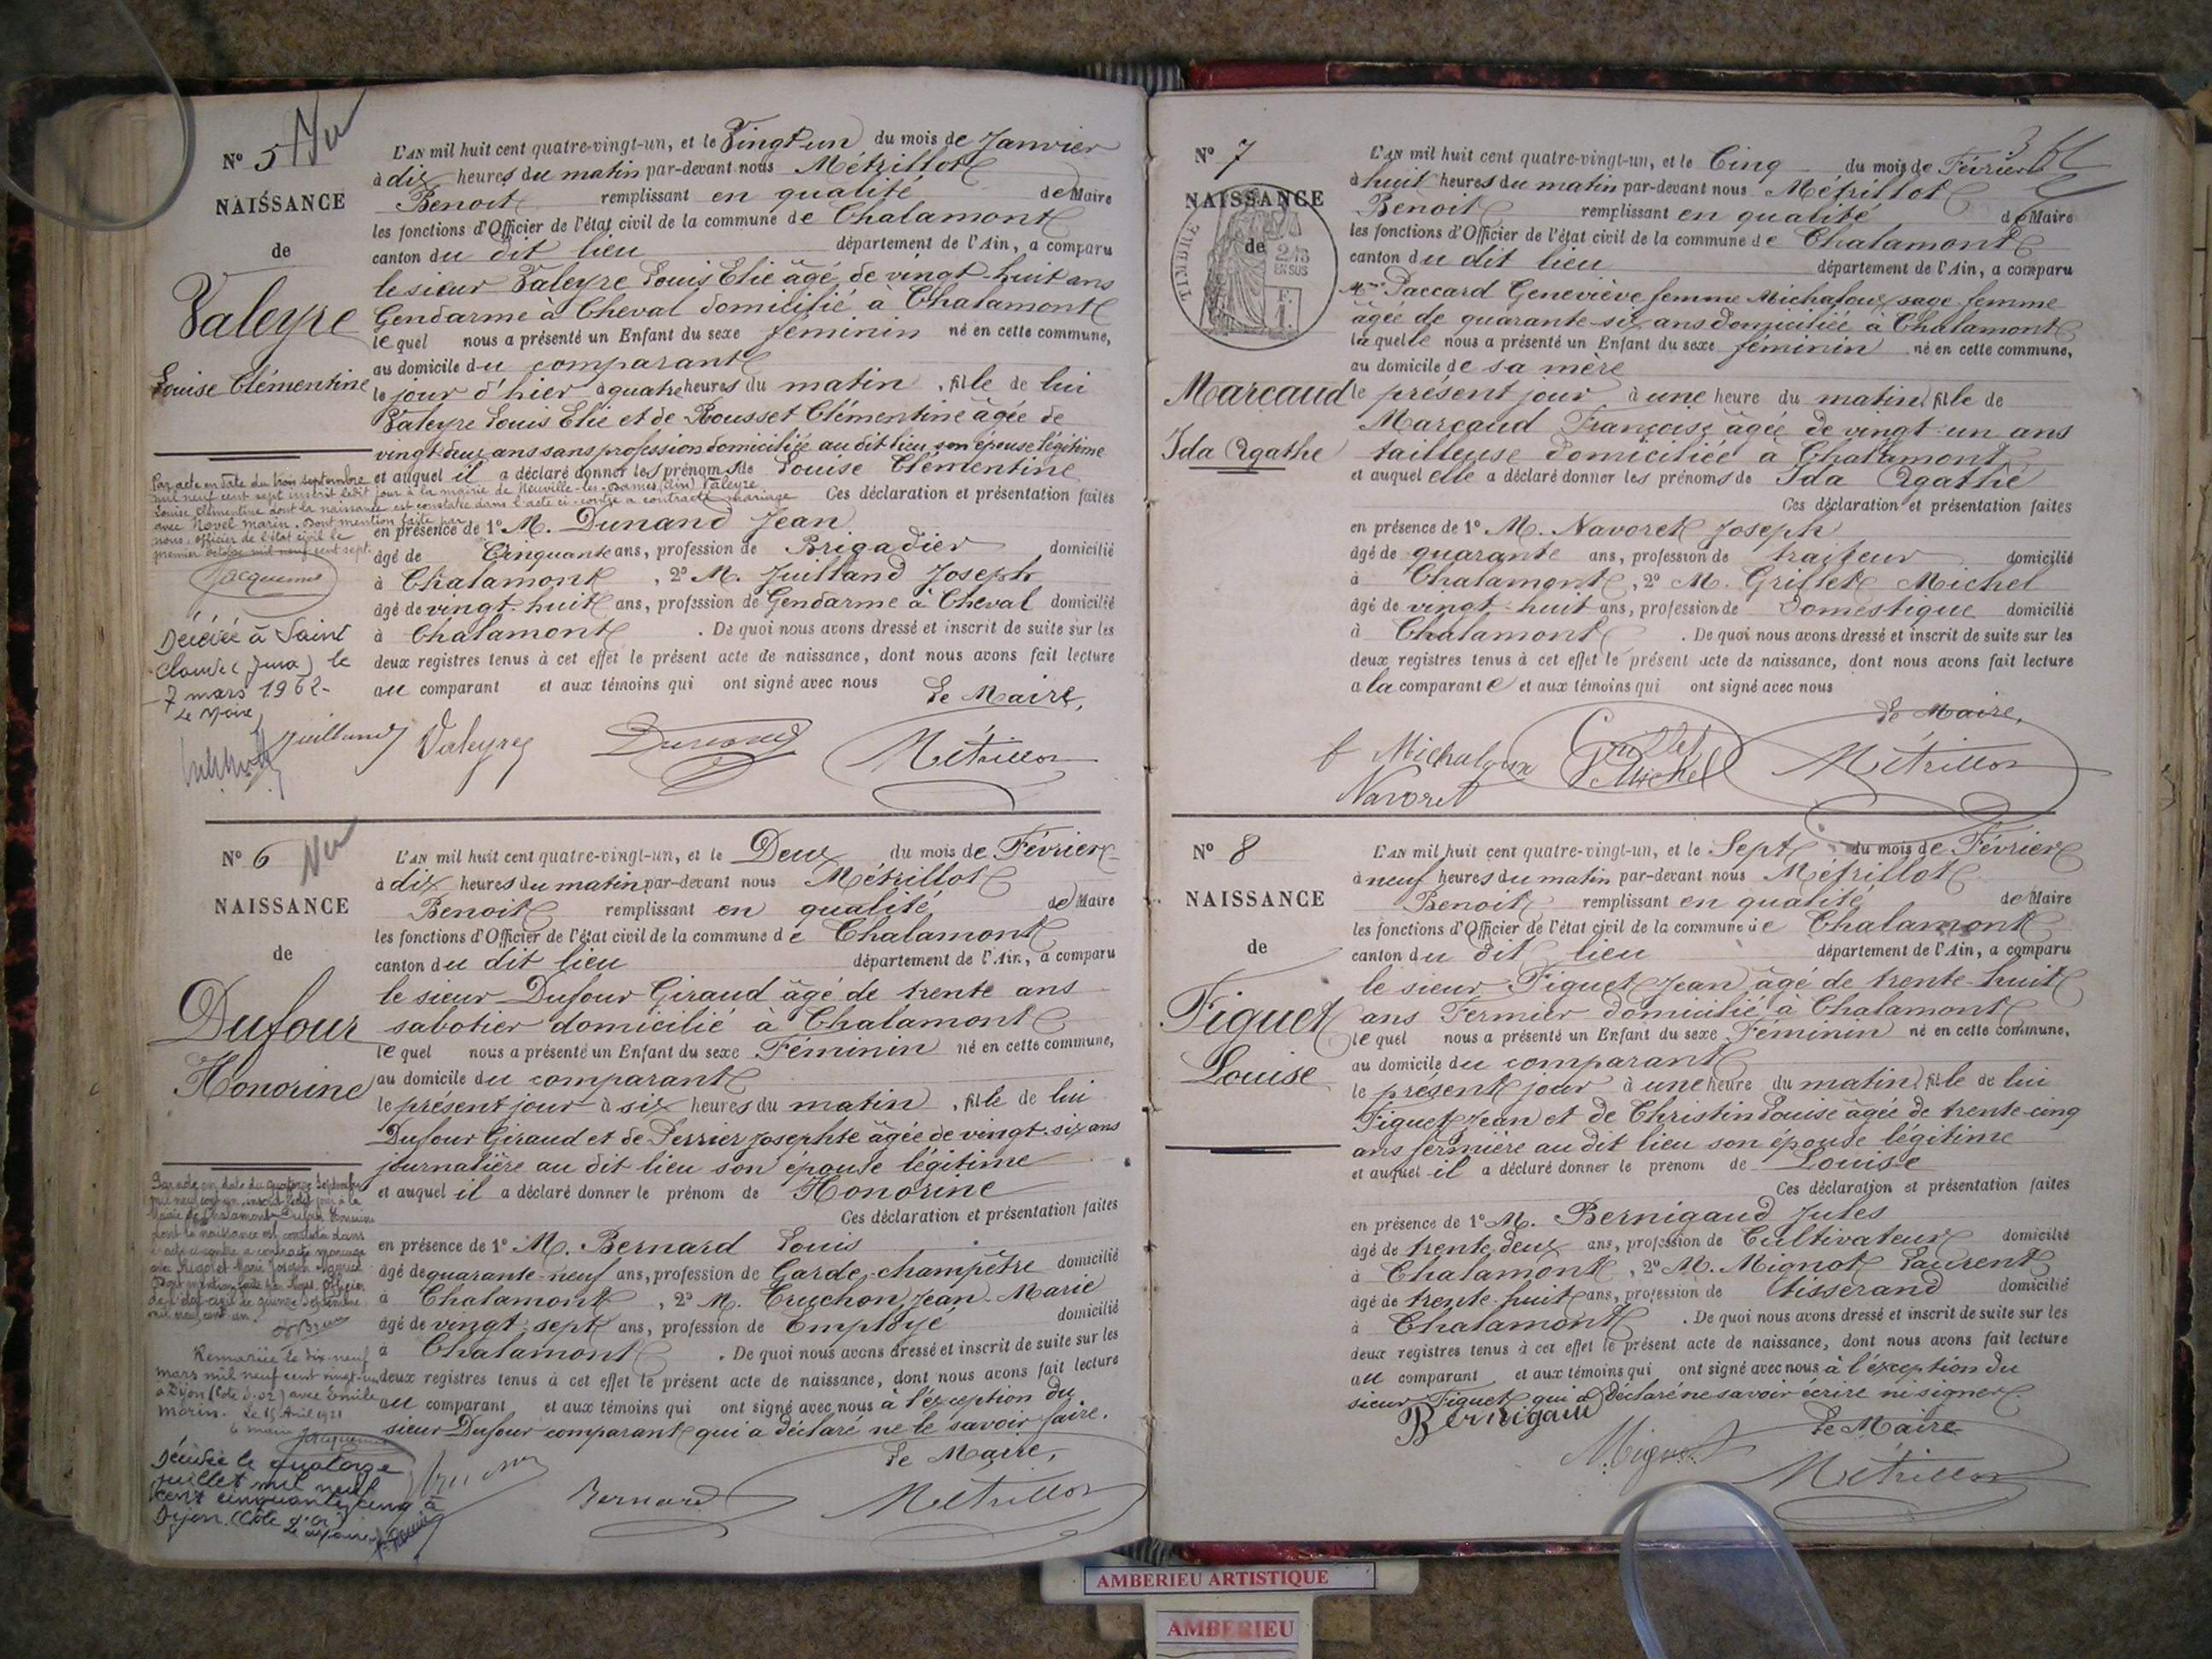 N° 5 Vu
NAISSANCE
de
Valeyre
Louise Clémentine
L'AN mil huit cent quatre-vingt-un, et le Vingt-un du mois de Janvier
à dix heures du matin par-devant nous Métrillot
Benoit remplissant en qualité de Maire
les fonctions d'Officier de l'état civil de la commune de Chalamont
canton du dit lieu département de l'Ain, a comparu
le sieur Valeyre Louis Elie âgé de vingt-huit ans
Gendarme à Cheval domicilié à Chalamont
lequel nous a présenté un Enfant du sexe féminin né en cette commune,
au domicile du comparant
le jour d'hier à quatre heures du matin, fille de lui
Valeyre Louis Elie et de Rousset Clémentine âgée de
vingt-deux ans sans profession domiciliée au dit lieu son épouse légitime
et auquel il a déclaré donner les prénoms de Louise Clémentine
Ces déclaration et présentation faites
en présence de 1° M. Dunand Jean
âgé de Cinquante ans, profession de Brigadier domicilié
à Chalamont, 2° M. Juilland Joseph
âgé de vingt-huit ans, profession de Gendarme à Cheval domicilié
à Chalamont. De quoi nous avons dressé et inscrit de suite sur les
deux registres tenus à cet effet le présent acte de naissance, dont nous avons fait lecture
au comparant et aux témoins qui ont signé avec nous
Le Maire,
Juilland Valeyre Dunand Métrillot
Par acte en date du trois septembre
mil neuf cent sept inscrit ledit jour à la mairie de Neuville-les-Dames (Ain) Valeyre
Louise Clémentine dont la naissance est constatée dans l'acte ci-contre a contracté mariage
avec Novel Marin. Dont mention faite par
nous, officier de l'état civil le
premier octobre mil neuf cent sept.
Jacquemin
Décédée à Saint
Claude (Jura) le
7 mars 1962-
Le Maire
N° 6 Vu
NAISSANCE
de
Dufour
Honorine
L'AN mil huit cent quatre-vingt-un, et le Deux du mois de Février
à dix heures du matin par-devant nous Métrillot
Benoit remplissant en qualité de Maire
les fonctions d'Officier de l'état civil de la commune de Chalamont
canton du dit lieu département de l'Ain, a comparu
le sieur Dufour Giraud âgé de trente ans
sabotier domicilié à Chalamont
lequel nous a présenté un Enfant du sexe Féminin né en cette commune,
au domicile du comparant
le présent jour à six heures du matin, fille de lui
Dufour Giraud et de Perrier Josephte âgée de vingt-six ans
journalière au dit lieu son épouse légitime
et auquel il a déclaré donner le prénom de Honorine
Ces déclaration et présentation faites
en présence de 1° M. Bernard Louis
âgé de quarante-neuf ans, profession de Garde-champêtre domicilié
à Chalamont, 2° M. Cruchon Jean-Marie
âgé de vingt-sept ans, profession de Employé domicilié
à Chalamont. De quoi nous avons dressé et inscrit de suite sur les
deux registres tenus à cet effet le présent acte de naissance, dont nous avons fait lecture
au comparant et aux témoins qui ont signé avec nous à l'éxception du
sieur Dufour comparant qui a déclaré ne le savoir faire.
Le Maire,
Bernard Métrillot
Par acte en date du quatorze Septembre
mil neuf cent un, inscrit ledit jour à la
Mairie de Chalamont Dufour Honorine
dont la naissance est constatée dans
l'acte ci-contre a contracté mariage
avec Marie Joseph
Dont mention faite par Nous, Officier
de l'état-civil le quinze Septembre
mil neuf cent un.
Remariée le dix-neuf
mars mil neuf cent vingt-un
à Dijon (Côte d'or) avec Emile
Morin. Le 15 Avril 1921
Le maire Jacquemin
Décédée le quatorze
juillet mil neuf
cent cinquante cinq à
Dijon (Côte d'Or)
Le Maire
N° 7
NAISSANCE
de
TIMBRE
2/10
EN SUS
F.
1.
Marcaud
Ida Agathe
L'AN mil huit cent quatre-vingt-un, et le Cinq du mois de Février
à huit heures du matin par-devant nous Métrillot
Benoit remplissant en qualité de Maire
les fonctions d'Officier de l'état civil de la commune de Chalamont
canton du dit lieu département de l'Ain, a comparu
Mme Paccard Geneviève femme Michaloux sage-femme
âgée de quarante-six ans domiciliée à Chalamont
laquelle nous a présenté un Enfant du sexe féminin né en cette commune,
au domicile de sa mère
le présent jour à une heure du matin, fille de
Marcaud Françoise âgée de vingt-un ans
tailleuse domiciliée a Chalamont
et auquel elle a déclaré donner les prénoms de Ida Agathe
Ces déclaration et présentation faites
en présence de 1° M. Navoret Joseph
âgé de quarante ans, profession de traiteur domicilié
à Chalamont, 2° M. Grillet Michel
âgé de vingt-huit ans, profession de Domestique domicilié
à Chalamont. De quoi nous avons dressé et inscrit de suite sur les
deux registres tenus à cet effet le présent acte de naissance, dont nous avons fait lecture
a la comparante et aux témoins qui ont signé avec nous
Le Maire,
f Michaloux Grillet Michel Métrillot
Navoret
N° 8
NAISSANCE
de
Figuet
Louise
L'AN mil huit cent quatre-vingt-un, et le Sept du mois de Février
à neuf heures du matin par-devant nous Métrillot
Benoit remplissant en qualité de Maire
les fonctions d'Officier de l'état civil de la commune de Chalamont
canton du dit lieu département de l'Ain, a comparu
le sieur Figuet Jean âgé de trente-huit
ans Fermier domicilié à Chalamont
lequel nous a présenté un Enfant du sexe Féminin né en cette commune,
au domicile du comparant
le présent jour à une heure du matin, fille de lui
Figuet Jean et de Christin Louise âgée de trente-cinq
ans fermière au dit lieu son épouse légitime
et auquel il a déclaré donner le prénom de Louise
Ces déclaration et présentation faites
en présence de 1° M. Bernigaud Jules
âgé de trente deux ans, profession de Cultivateur domicilié
à Chalamont, 2° M. Mignot Laurent
âgé de trente-huit ans, profession de tisserand domicilié
à Chalamont. De quoi nous avons dressé et inscrit de suite sur les
deux registres tenus à cet effet le présent acte de naissance, dont nous avons fait lecture
au comparant et aux témoins qui ont signé avec nous à l'éxception du
sieur Figuet qui a déclaré ne savoir écrire ni signer
Bernigaud
Le Maire
Mignot Métrillot
AMBERIEU ARTISTIQUE
AMBERIEU